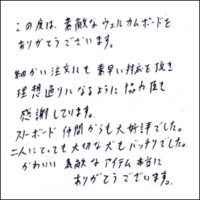 この度は、素敵なウェルカムボードを
ありがとうございます。
細かい注文にも素早い対応を頂き
理想通りになるように協力度も
感謝しています。
スノーボード仲間からも大好評でした。
二人にとっても大切な犬もバッチリでした。
かわいい素敵なアイテム本当に
ありがとうございます。